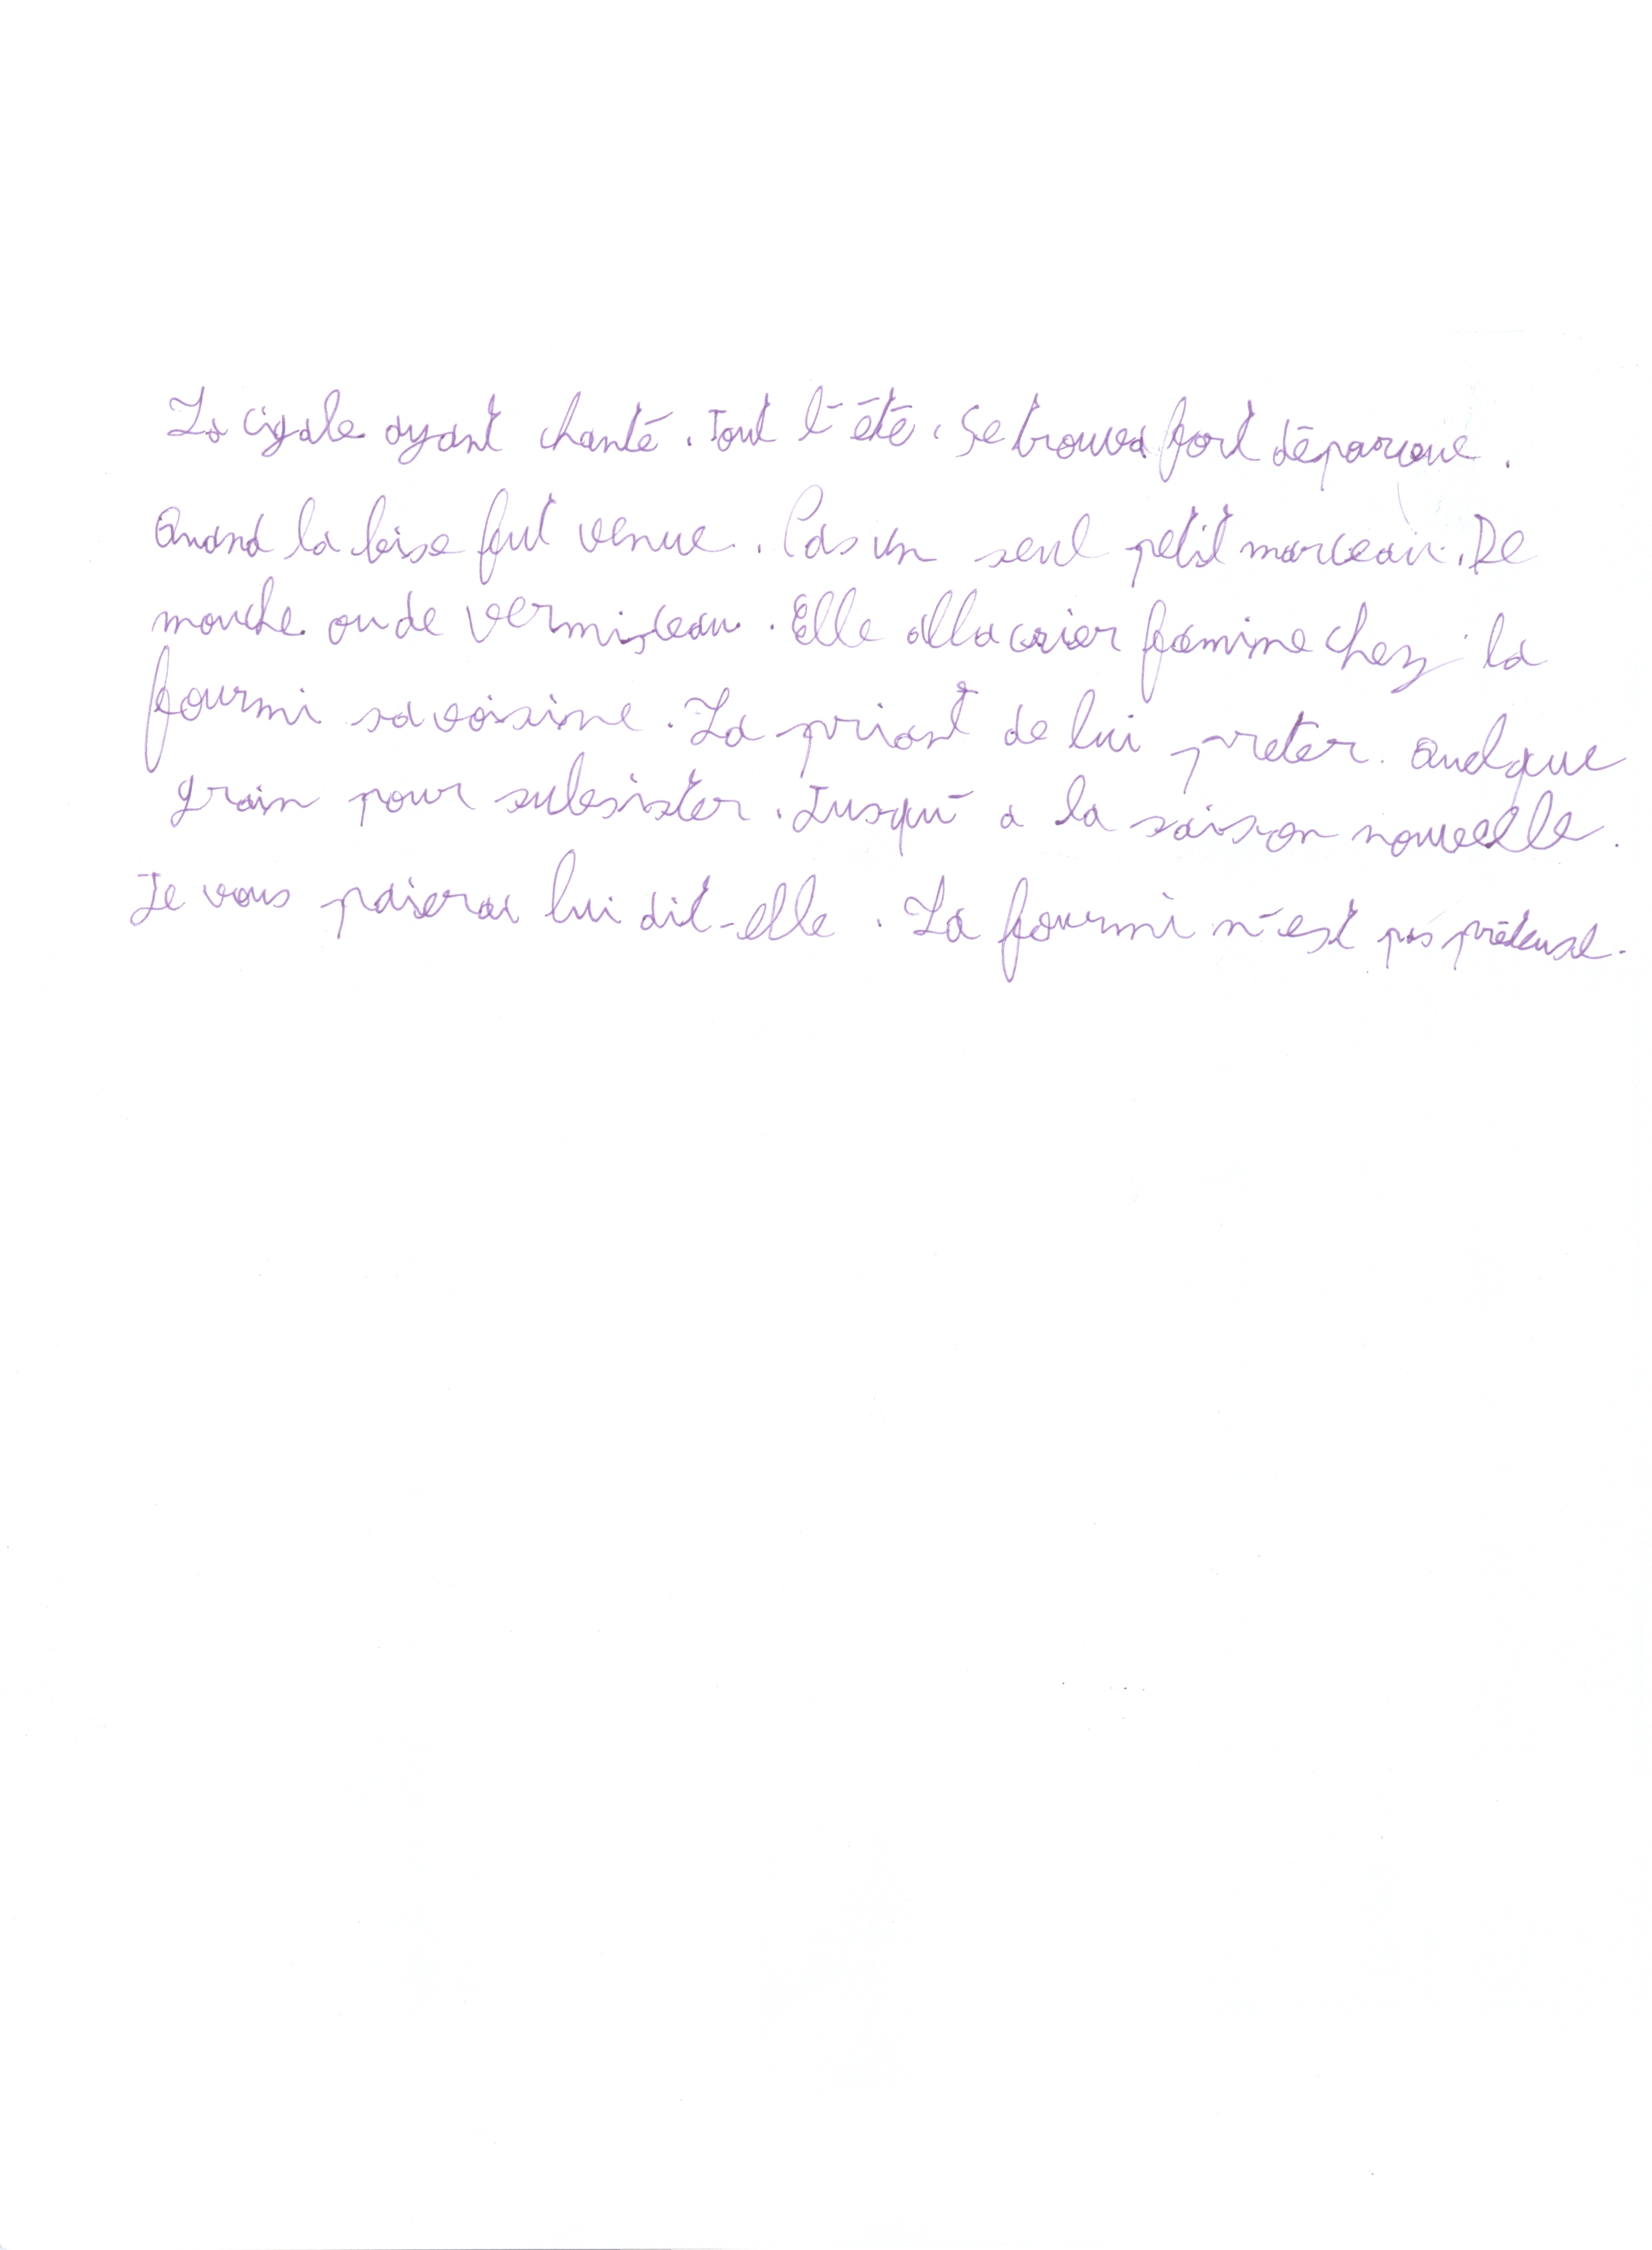 La cigale ayant chanté. Tout l'été. Se trouva fort dépourvue.
Quand la bise fut venue. Pas un seul petit morceau. De
mouche ou de vermisseau. Elle alla crier famine chez la
fourmi sa voisine. La priant de lui preter. Quelque
grain pour subsister. Jusqu'a la saison nouvelle.
Je vous paierai lui dit-elle. La fourmi n'est pas prêteuse.